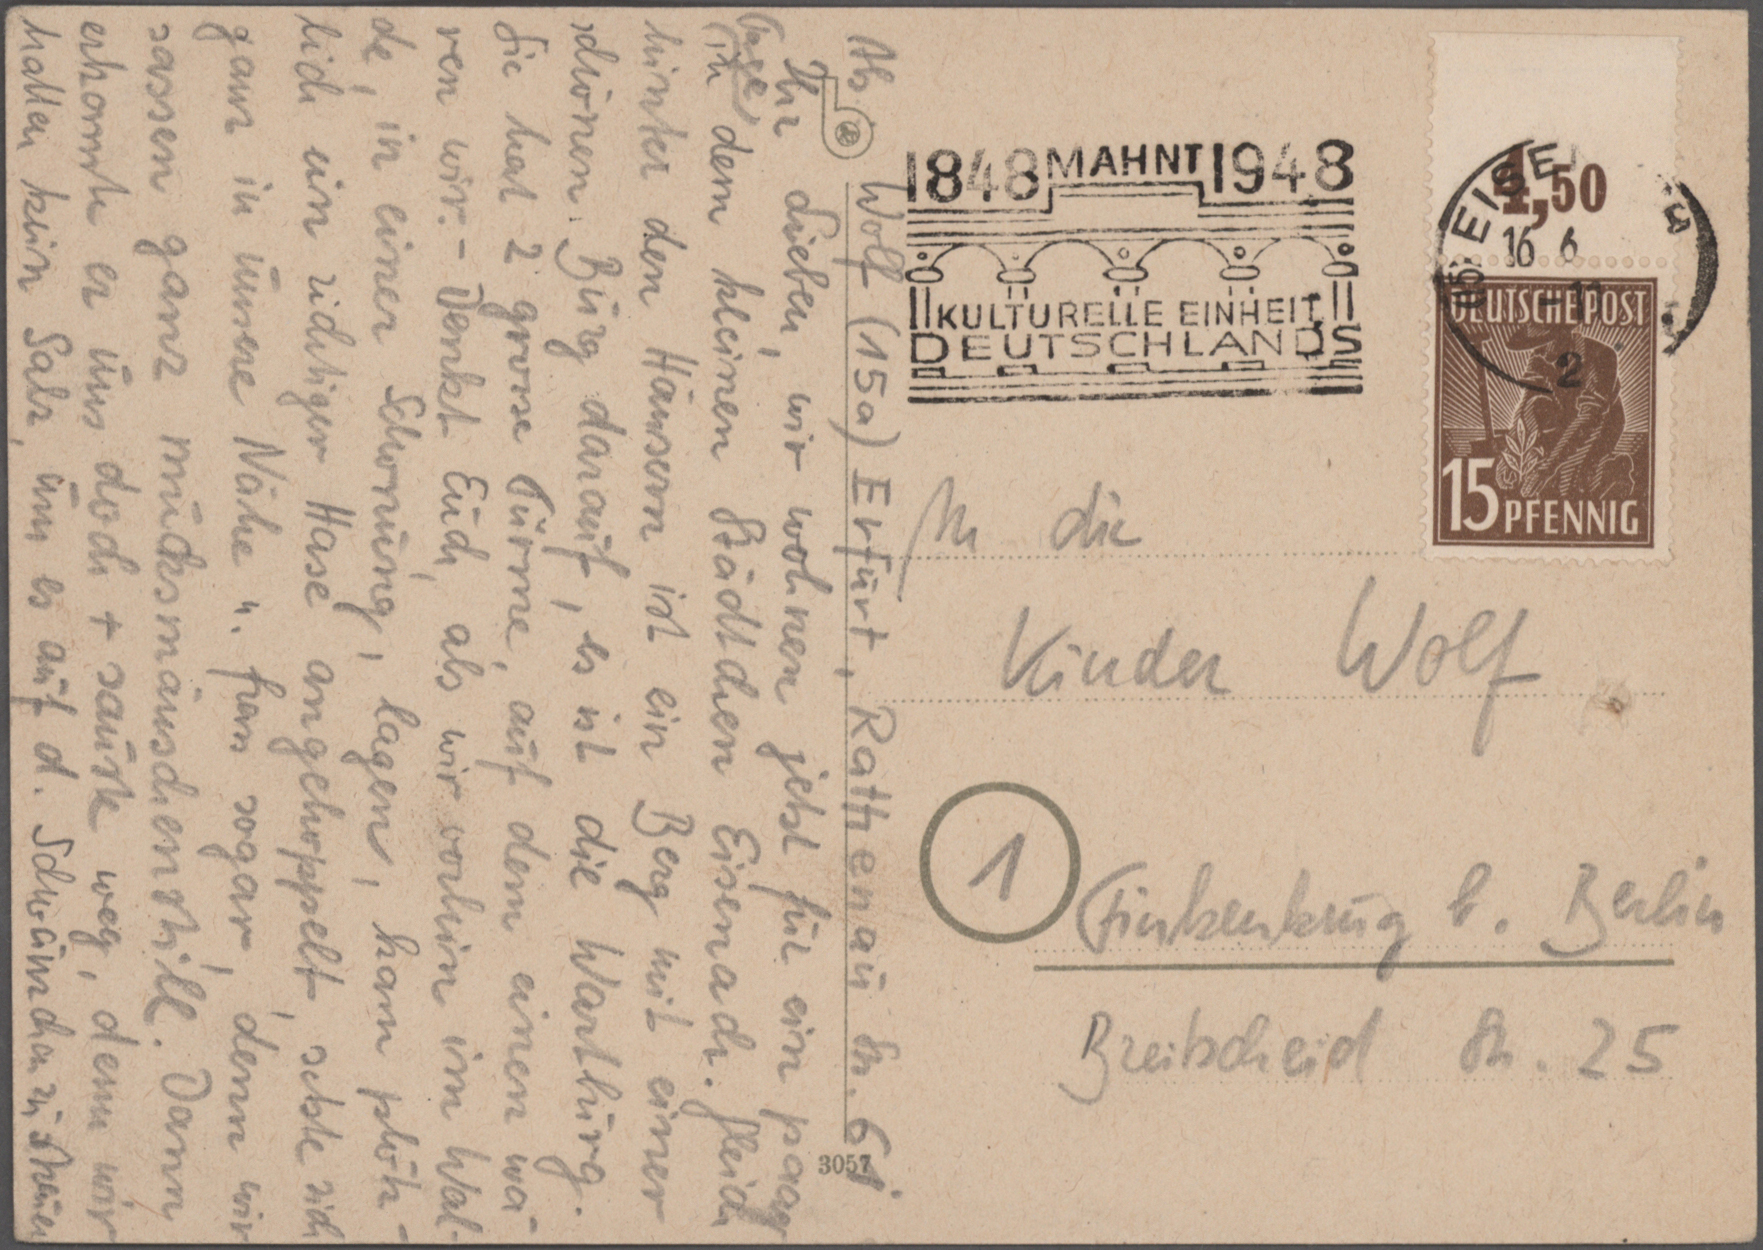 Abs. Wolf (15a) Erfurt, Rathenau Str. 61.
Ihr Lieben, wir wohnen jetzt für ein paar
Tage
in dem kleinen Städtchen Eisenach. Gleich
hinter den Häusern ist ein Berg mit einer
schönen Burg darauf, es ist die Wartburg.
Sie hat 2 grosse Türme, auf dem einen wa-
ren wir. - Denkt Euch, als wir vorhin im Wal-
de, in einer Schonung, lagen, kam plötz-
lich ein richtiger Hase angehoppelt, setzte sich
ganz in unsere Nähe u. sogar, denn wir
sassen ganz mucksmäuschenstill. Dann
erkannte er uns doch + sauste weg, denn wir
hatten kein Salz, um es auf d. Schwänzchen zu streuen
1848 MAHNT 1948
KULTURELLE EINHEIT
DEUTSCHLANDS
4,50
EISE
16 6
2
DEUTSCHE POST
15 PFENNIG
An die
Kinder Wolf
1
Finkenkrug b. Berlin
Breitscheid Str. 25
3057